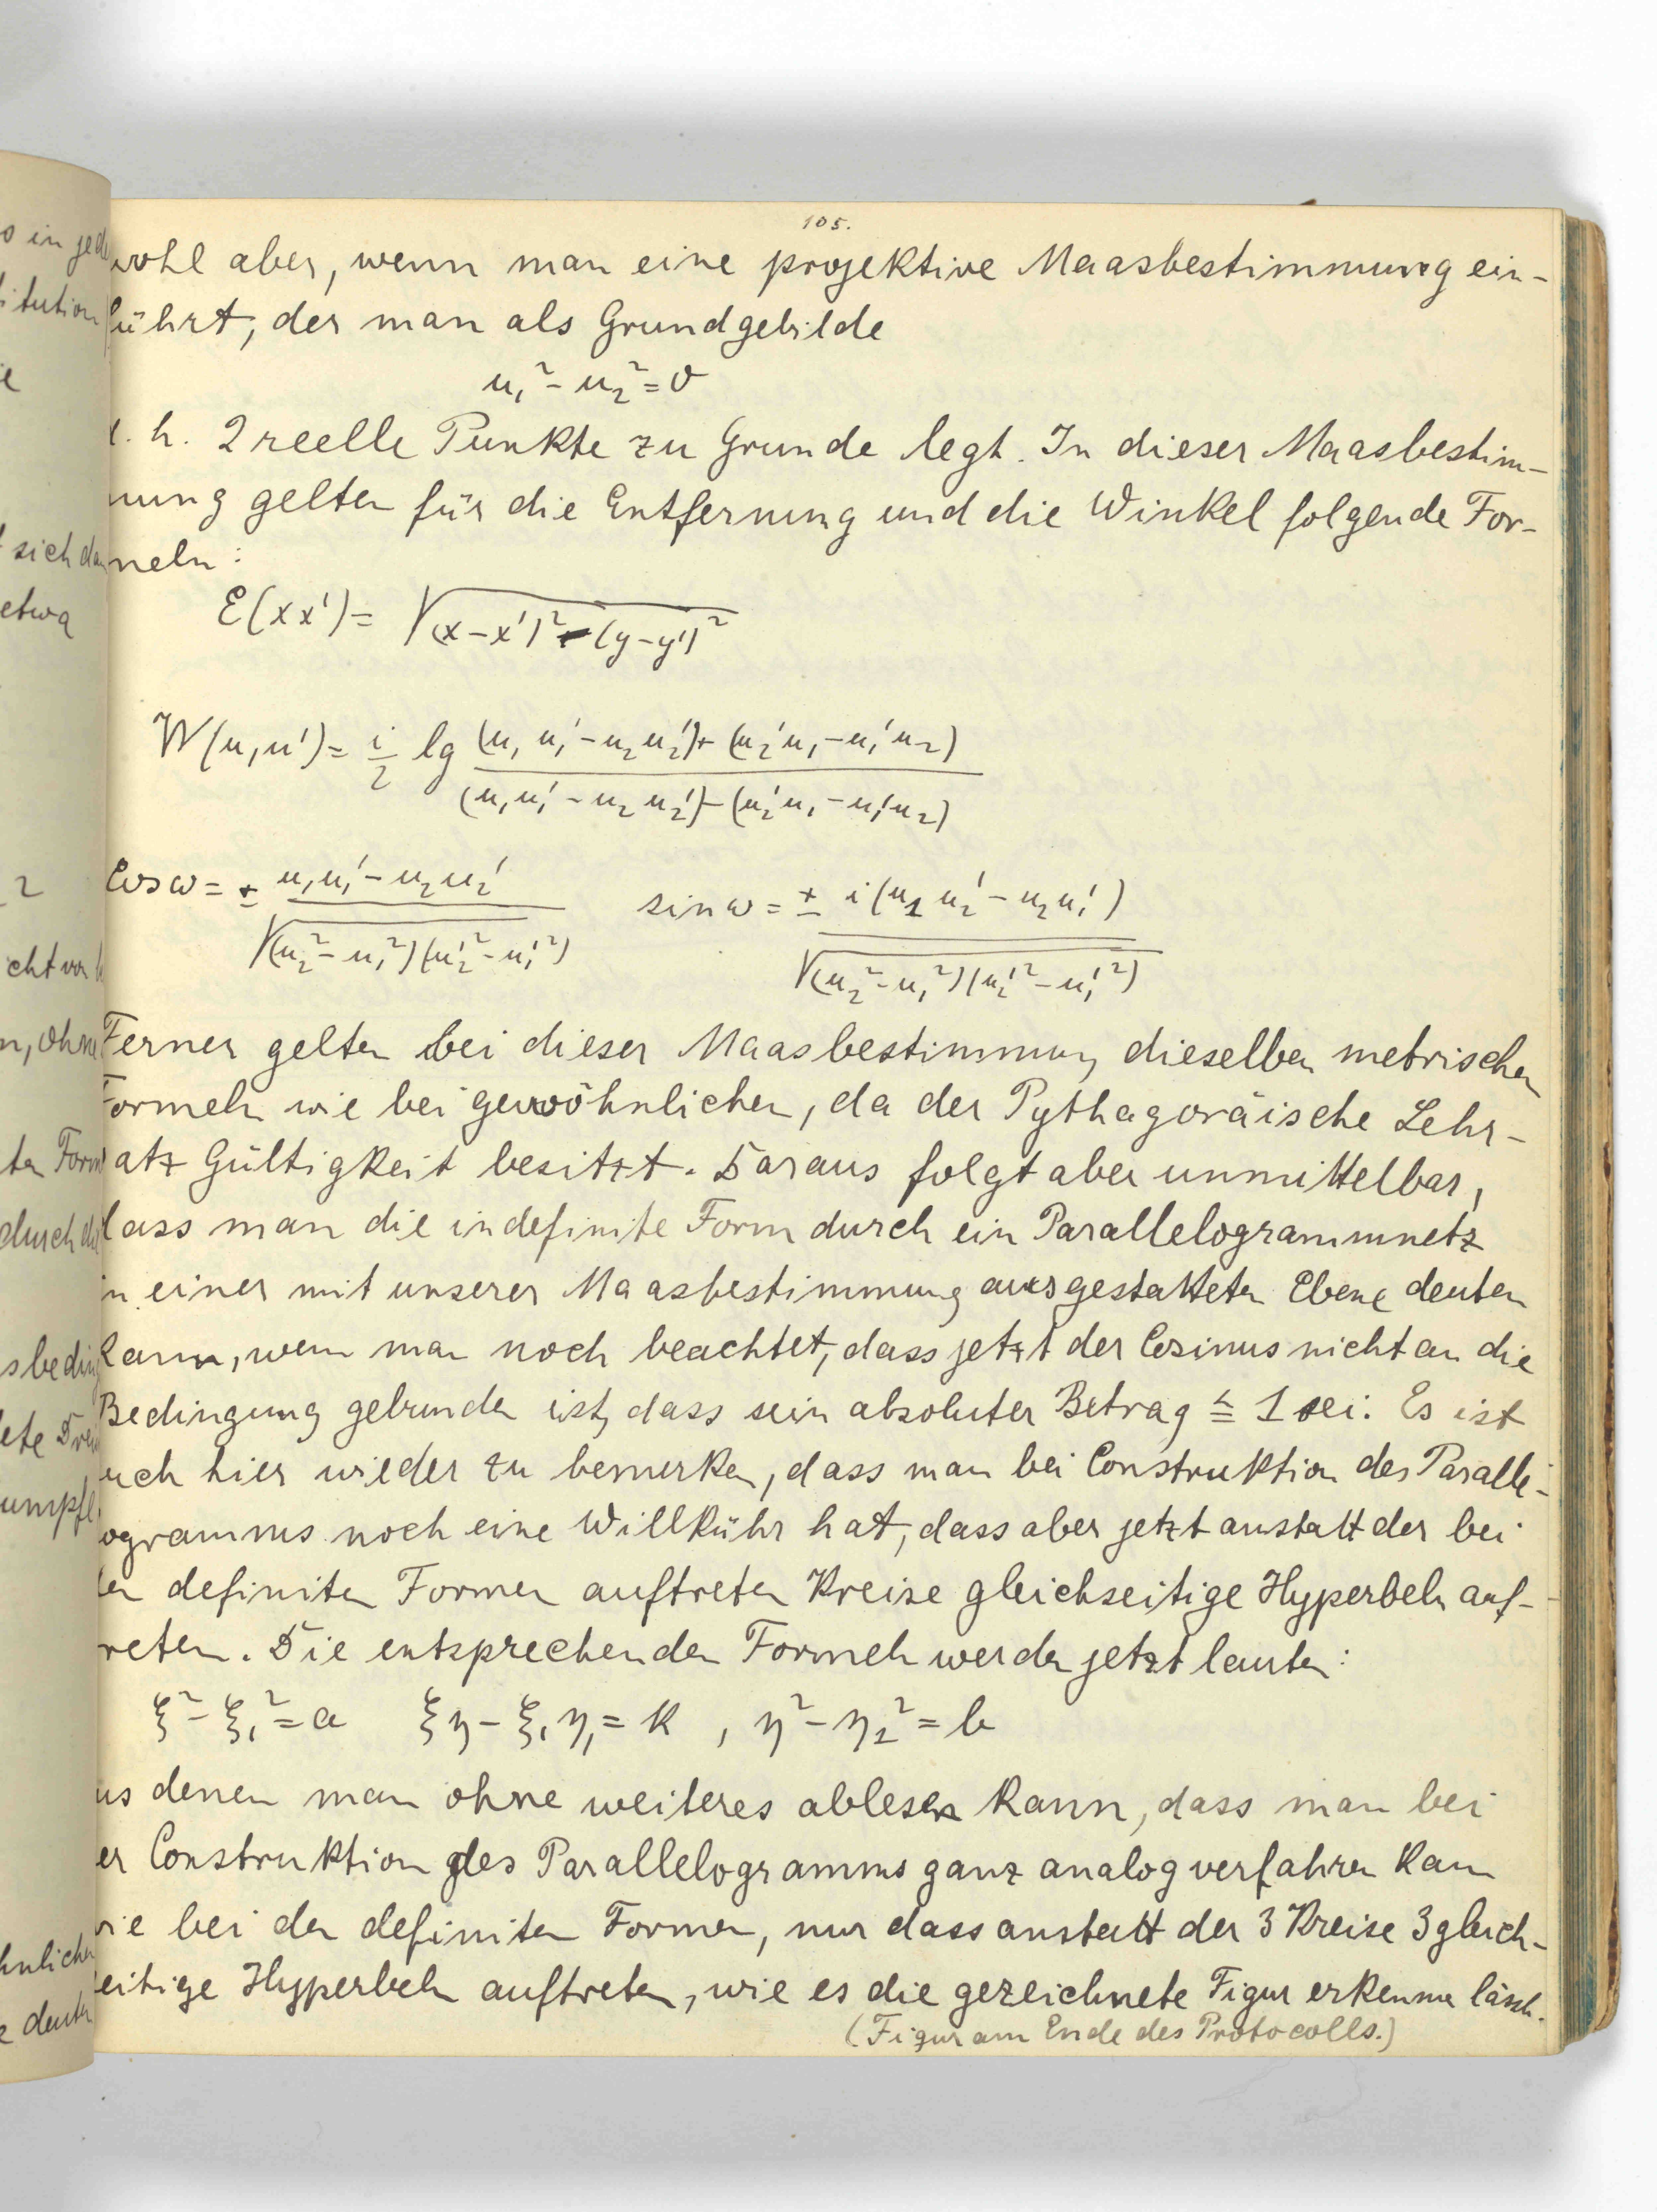 105.
wohl aber, wenn man eine projektive Maasbestimmung ein-
führt, der man als Grundgebilde
u₁² - u₂² = 0
d. h. 2 reelle Punkte zu Grunde legt. In dieser Maasbestim-
mung gelten für die Entfernung und die Winkel folgende For-
meln:
E(xx') = √((x-x')² - (y-y')²)
W(u,u') = i/2 lg ((u₁u₁' - u₂u₂') + (u₂'u₁ - u₁'u₂)) / ((u₁u₁' - u₂u₂') - (u₂'u₁ - u₁'u₂))
Cos ω = ± (u₁u₁' - u₂u₂') / √((u₂² - u₁²)(u₂'² - u₁'²)) sin ω = ± i(u₁u₂' - u₂u₁') / √((u₂² - u₁²)(u₂'² - u₁'²))
Ferner gelten bei dieser Maasbestimmung dieselben metrischen
Formeln wie bei gewöhnlicher, da der Pythagoräische Lehr-
satz Gültigkeit besitzt. Daraus folgt aber unmittelbar,
dass man die indefinite Form durch ein Parallelogrammnetz
in einer mit unserer Maasbestimmung ausgestatteten Ebene deuten
kann, wenn man noch beachtet, dass jetzt der Cosinus nicht an die
Bedingung gebunden ist, dass sein absoluter Betrag ≦ 1 sei. Es ist
auch hier wieder zu bemerken, dass man bei Construktion des Paralle-
logramms noch eine Willkühr hat, dass aber jetzt anstatt der bei
den definiten Formen auftreten Kreise gleichseitige Hyperbeln auf-
treten. Die entsprechenden Formeln werden jetzt lauten:
ξ² - ξ₁² = a ξη - ξ₁η₁ = k , η² - η₁² = b
aus denen man ohne weiteres ablesen kann, dass man bei
der Construktion des Parallelogramms ganz analog verfahren kann
wie bei den definiten Formen, nur dass anstatt der 3 Kreise 3 gleich-
seitige Hyperbeln auftreten, wie es die gezeichnete Figur erkennen lässt.
(Figur am Ende des Protocolls.)